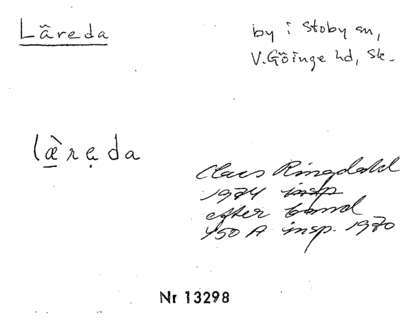 Låreda
by i Stoby sn,
V. Göinge hd, Sk.
læ̀rẹda
Claes Ringdahl
1974 insp
efter band
450 A insp. 1970
Nr 13298